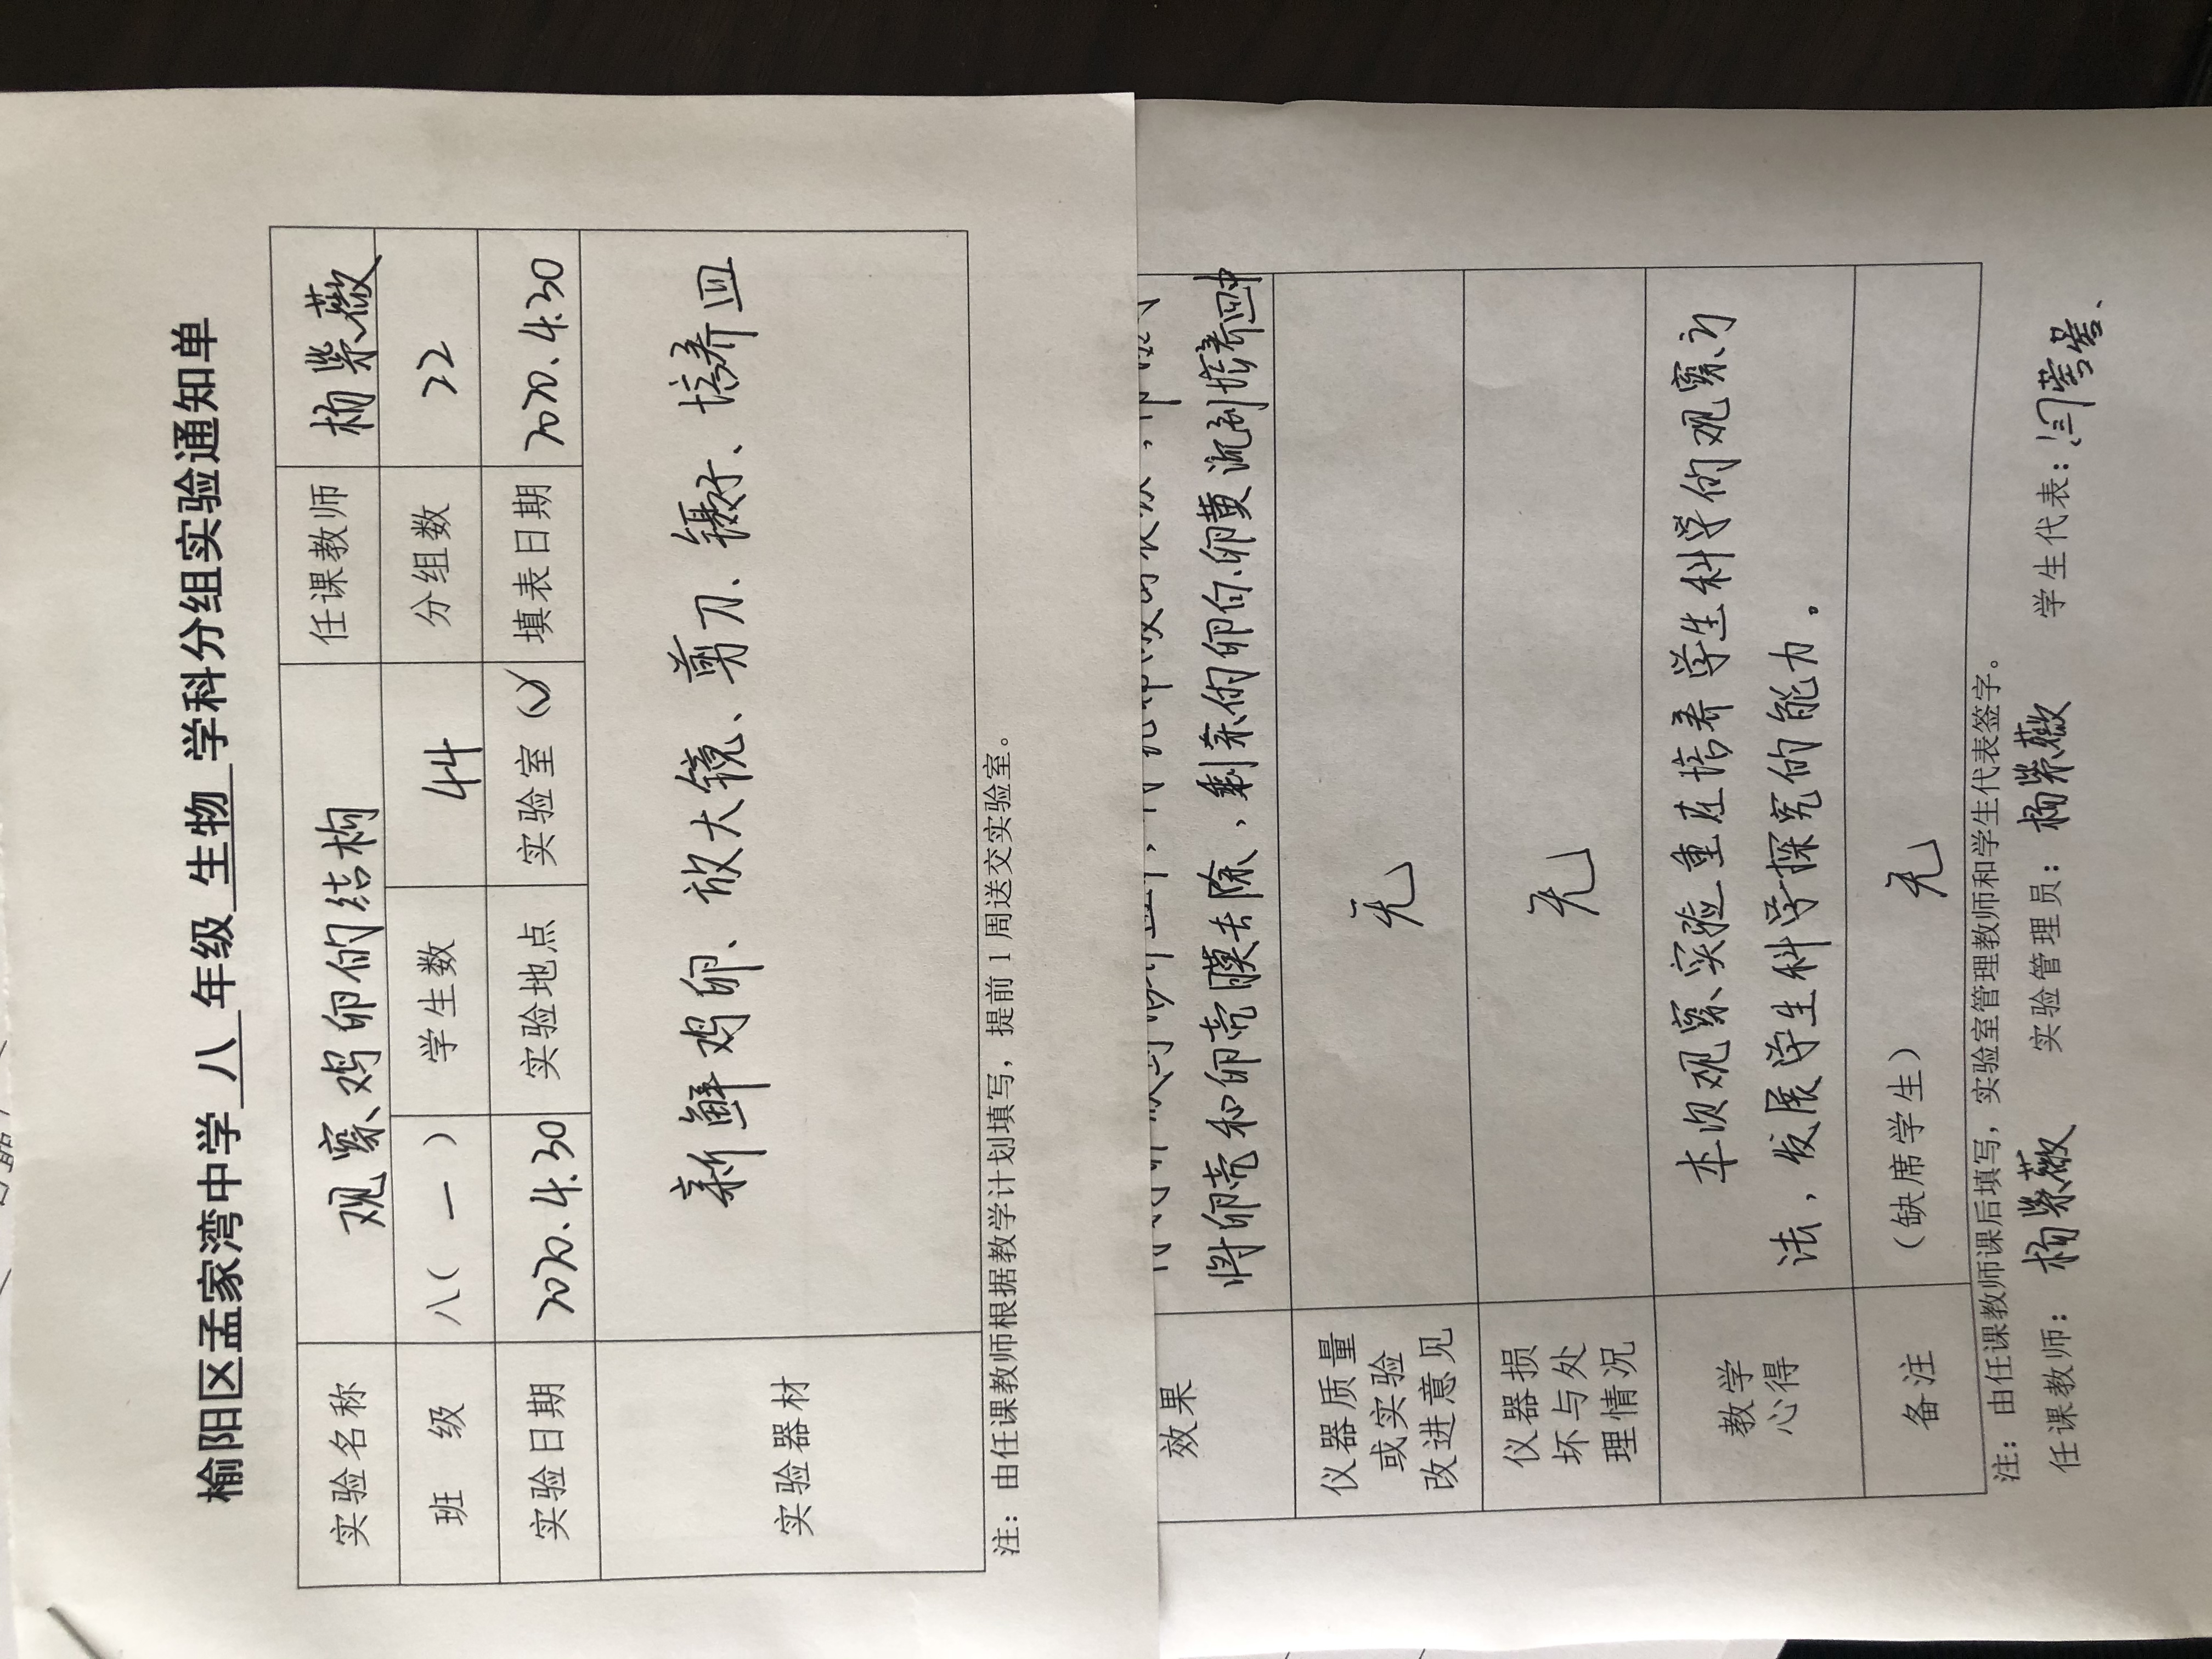 榆阳区孟家湾中学 八 年级 生物 学科分组实验通知单
实验名称 观察鸡卵的结构 任课教师 杨紫薇
班 级 八（ 一 ） 学生数 44 分组数 22
实验日期 2020.4.30 实验地点 实验室（√） 填表日期 2020.4.30
实验器材 新鲜鸡卵、放大镜、剪刀、镊子、培养皿
注：由任课教师根据教学计划填写，提前1周送交实验室。
效果 将卵壳和卵壳膜去除，剩余的卵白、卵黄流到培养皿中
仪器质量
或实验
改进意见
无
仪器损
坏与处
理情况
无
教学
心得
本次观察实验重在培养学生科学的观察方
法，发展学生科学探究的能力。
备注 （缺席学生） 无
注：由任课教师课后填写，实验室管理教师和学生代表签字。
任课教师：杨紫薇 实验管理员：杨紫薇 学生代表：闫